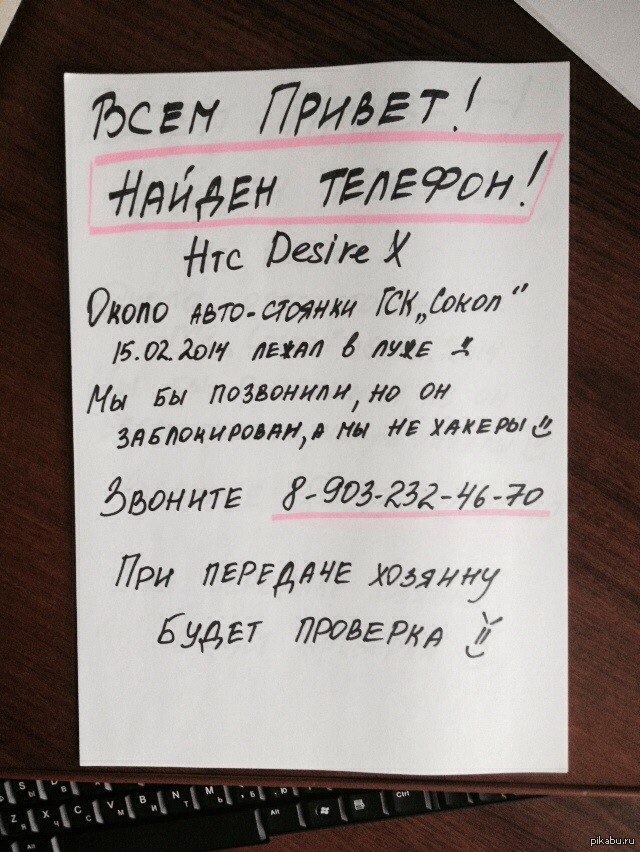 Всем Привет!
Найден телефон!
Нтс Desire X
Около авто-стоянки ГСК „Сокол"
15.02.2014 лежал в луже
Мы бы позвонили, но он
заблокирован, а мы не хакеры
Звоните 8-903-232-46-70
При передаче хозянну
будет проверка
S Ы
Z Я X Ч C С V М B И N Т M Ь , Б . Ю
Alt Alt Ctrl
pikabu.ru